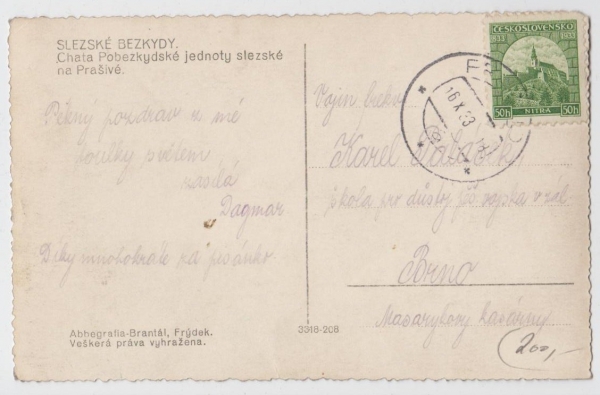 SLEZSKÉ BEZKYDY.
Chata Pobezkydské jednoty slezské
na Prašivé.
pozdrav z mé
zasílá
Dagmar
Díky mnohokráte za písánko.
Abbegrafia-Brantál, Frýdek.
Veškerá práva vyhražena.
3318-208
ČESKOSLOVENSKO
833 1933
50h NITRA 50h
16.X.33
Vojín
Karel
škola pro důst. vojska v zál.
Brno
Masarykovy kasárny
200,-